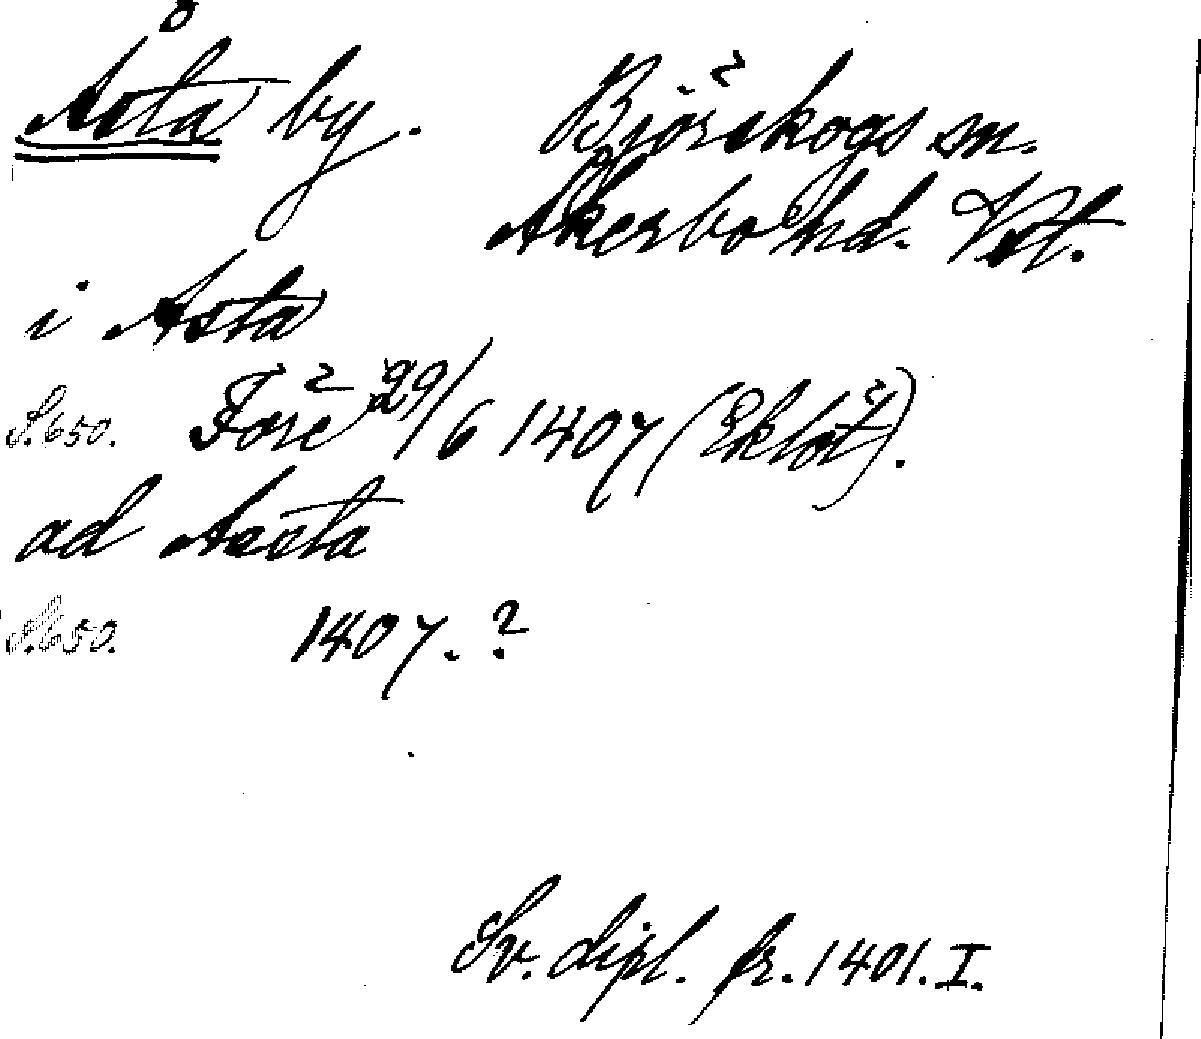 Åsta by. Björskogs sn.
Åkerbo hd. Vstl.
i Asta
S. 650. Före 29/6 1407 (Eklöt).
ad Aasta
S. 650. 1407.?
Sv. dipl. fr. 1401. I.